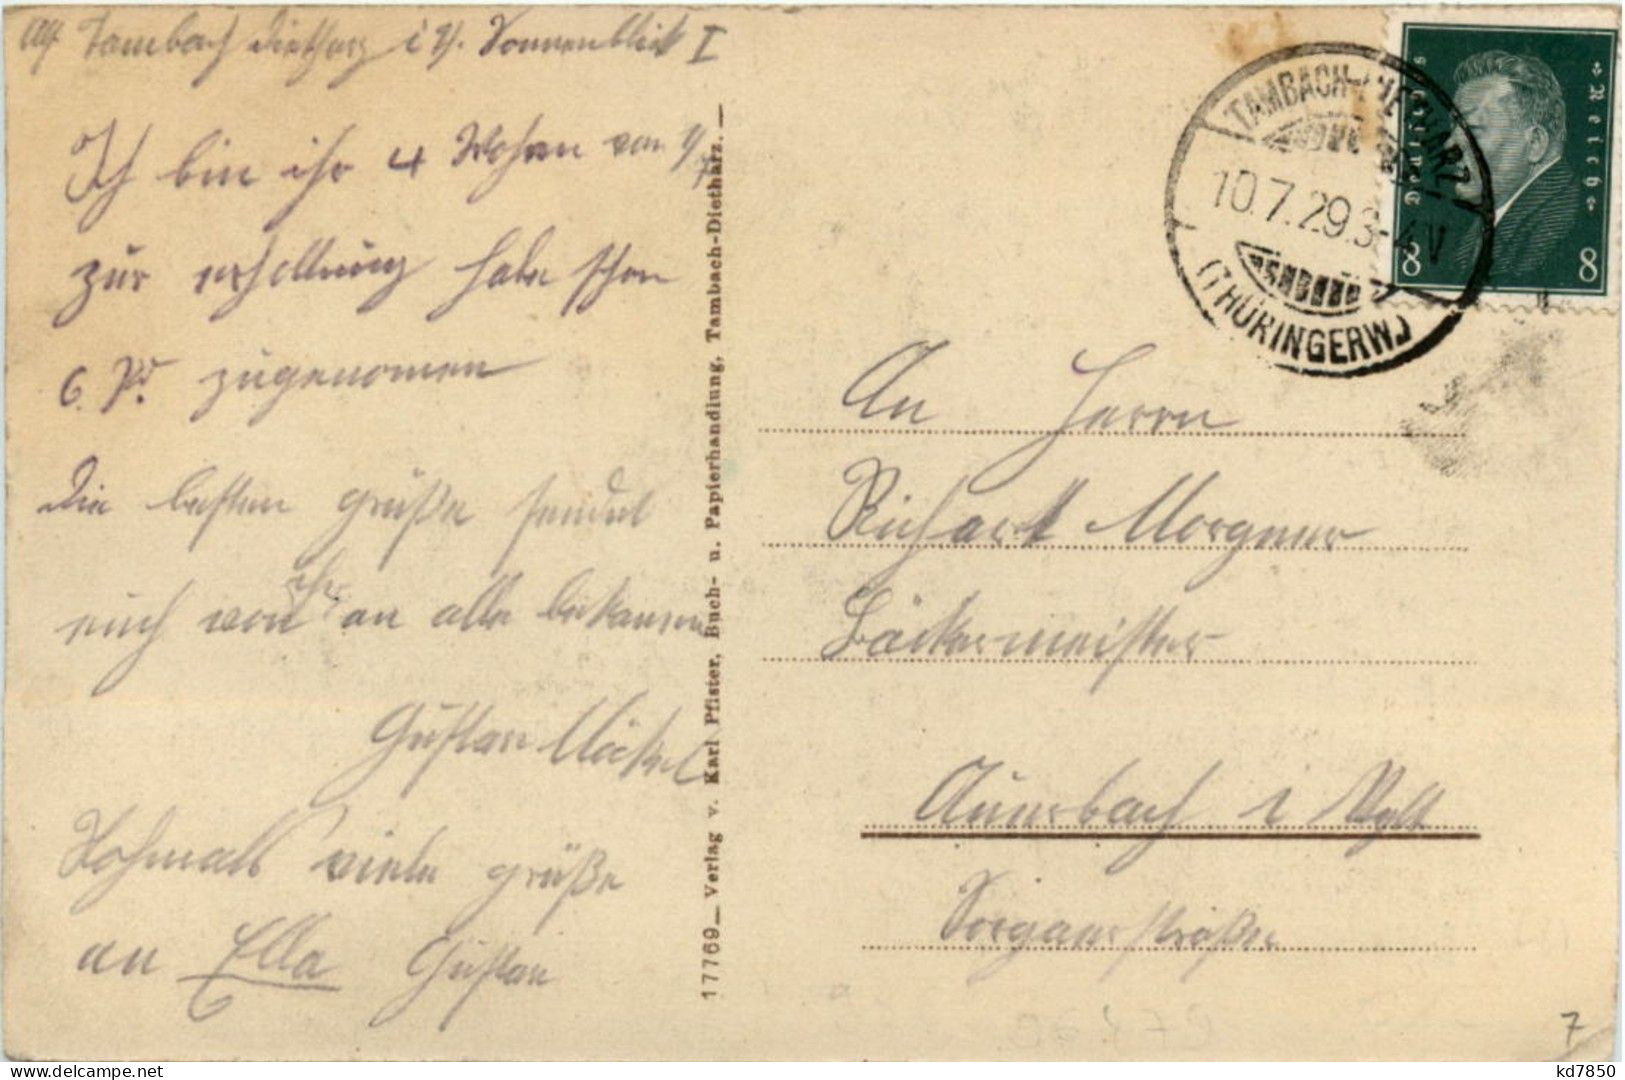 Tambach Dietharz i Th. Sonnenblick I
Ich bin ihr 4 Wochen von
zur erhollung habe schon
6. Pd. zugenomen
die besten grüße sendet
euch von ihr an alle bekannen
Gustav Möckel
Nochmals viele grüße
an Ella Gustav
17769 – Verlag v. Karl Pfister, Buch- u. Papierhandlung, Tambach-Dietharz. –
Deutsches Reich
8 8
TAMBACH-DIETHARZ
10.7.29.3-4 V
(THÜRINGERW.)
An Herrn
Richart Morgner
Bäckermeister
Auerbach i Vgtl
Sorgaerstraße
7
kd7850